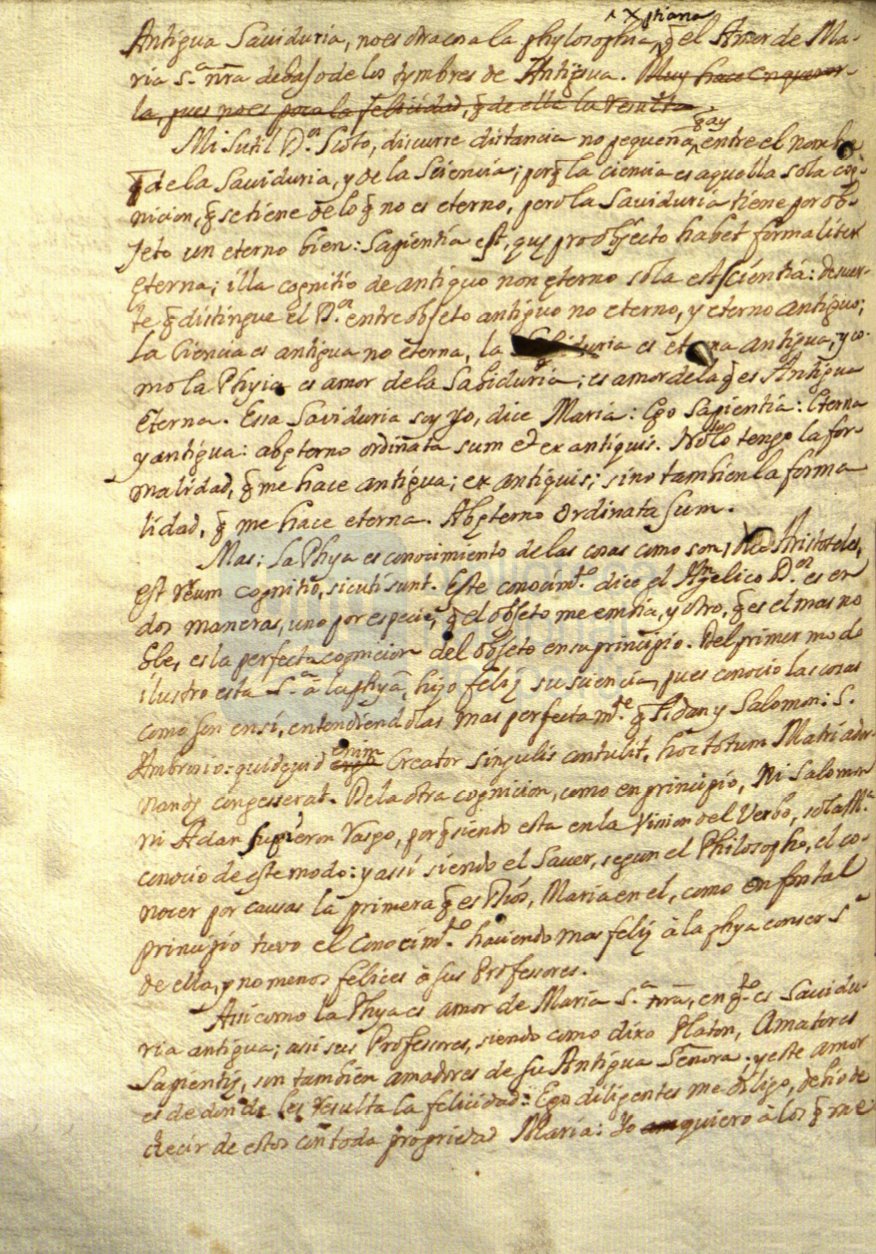 ^ Xptiana
Antigua Saviduria, no es otra cosa la phylosophia, q̃ el Amor de Ma-
ria S.ª nr̃a debaxo de los tymbres de Antigua. Muy hace en querer-
la, pues no es poca la felicidad, q̃ de ella la resulta
Mi Sutil D.ºr Scoto, discurre distancia no pequeña, q̃ ay entre el nombre
de la Saviduria, y de la Sciencia; porq̃ la ciencia es aquella sola cog-
nicion, q̃ se tiene de lo q̃ no es eterno, pero la Saviduria tiene por ob-
jeto un eterno bien: Sapientia est, quæ pro objecto habet formaliter
æterna; illa cognitio de antiquo non æterno sola est scientia: de suer-
te q̃ distingue el D.ºr entre objeto antiguo no eterno, y eterno antiguo;
la Ciencia es antigua no eterna, la Sabiduria es eterna antigua, y co-
mo la Physia es amor de la Sabiduria; es amor de la q̃ es Antigua
eterna. Essa Saviduria soy yo, dice Maria: Ego Sapientia: Eterna
y antigua: ab æterno ordinata sum et ex antiquis. No solo tengo la for-
malidad, q̃ me hace antigua; ex antiquis; sino tambien la forma
lidad, q̃ me hace eterna. Ab æterno ordinata sum.
Mas: La Phya es conocimiento de las cosas como son, dice Aristoteles,
est rerum cognitio, sicuti sunt. Este conocim.to dice el Angelico D.ºr es en
dos maneras, uno por especies, q̃ el objeto me embia, y otro, q̃ es el mas no
ble, es la perfecta cognicion del objeto en su principio. Del primer modo
ilustro esta S.ª â la phya, hizo feliz su sciencia, pues conocio las cosas
como son en sí, entendiendolas mas perfectam.te q̃ Adan y Salomon: S.
Ambrosio: quidquid enim Creator singulis contulit, hoc totum Matri ador-
nandæ congesserat. De la otra cognicion, como en principio, Ni Salomon
ni Adan supieron rasgo, porq̃ siendo esta en la vision del Verbo, sola M.ª
conocio de este modo: y assi siendo el Saver, segun el Philosopho, el co-
nocer por causas la primera q̃ es Dios, Maria en el, como en fontal
principio tuvo el conocim.to haciendo mas feliz à la phya con ser S.ª
de ella, y no menos felices à sus Professores.
Assi como la Phya es amor de Maria S.ª nr̃a, en q.to es Savidu-
ria antigua; assi sus Professores, siendo como dixo Platon, Amatores
Sapientiæ, son tambien amadores de su Antigua Señora. y este amor
es de donde les resulta la felicidad: Ego diligentes me diligo, debio de
decir de estos con toda propriedad Maria: Yo am quiero à los q̃ me